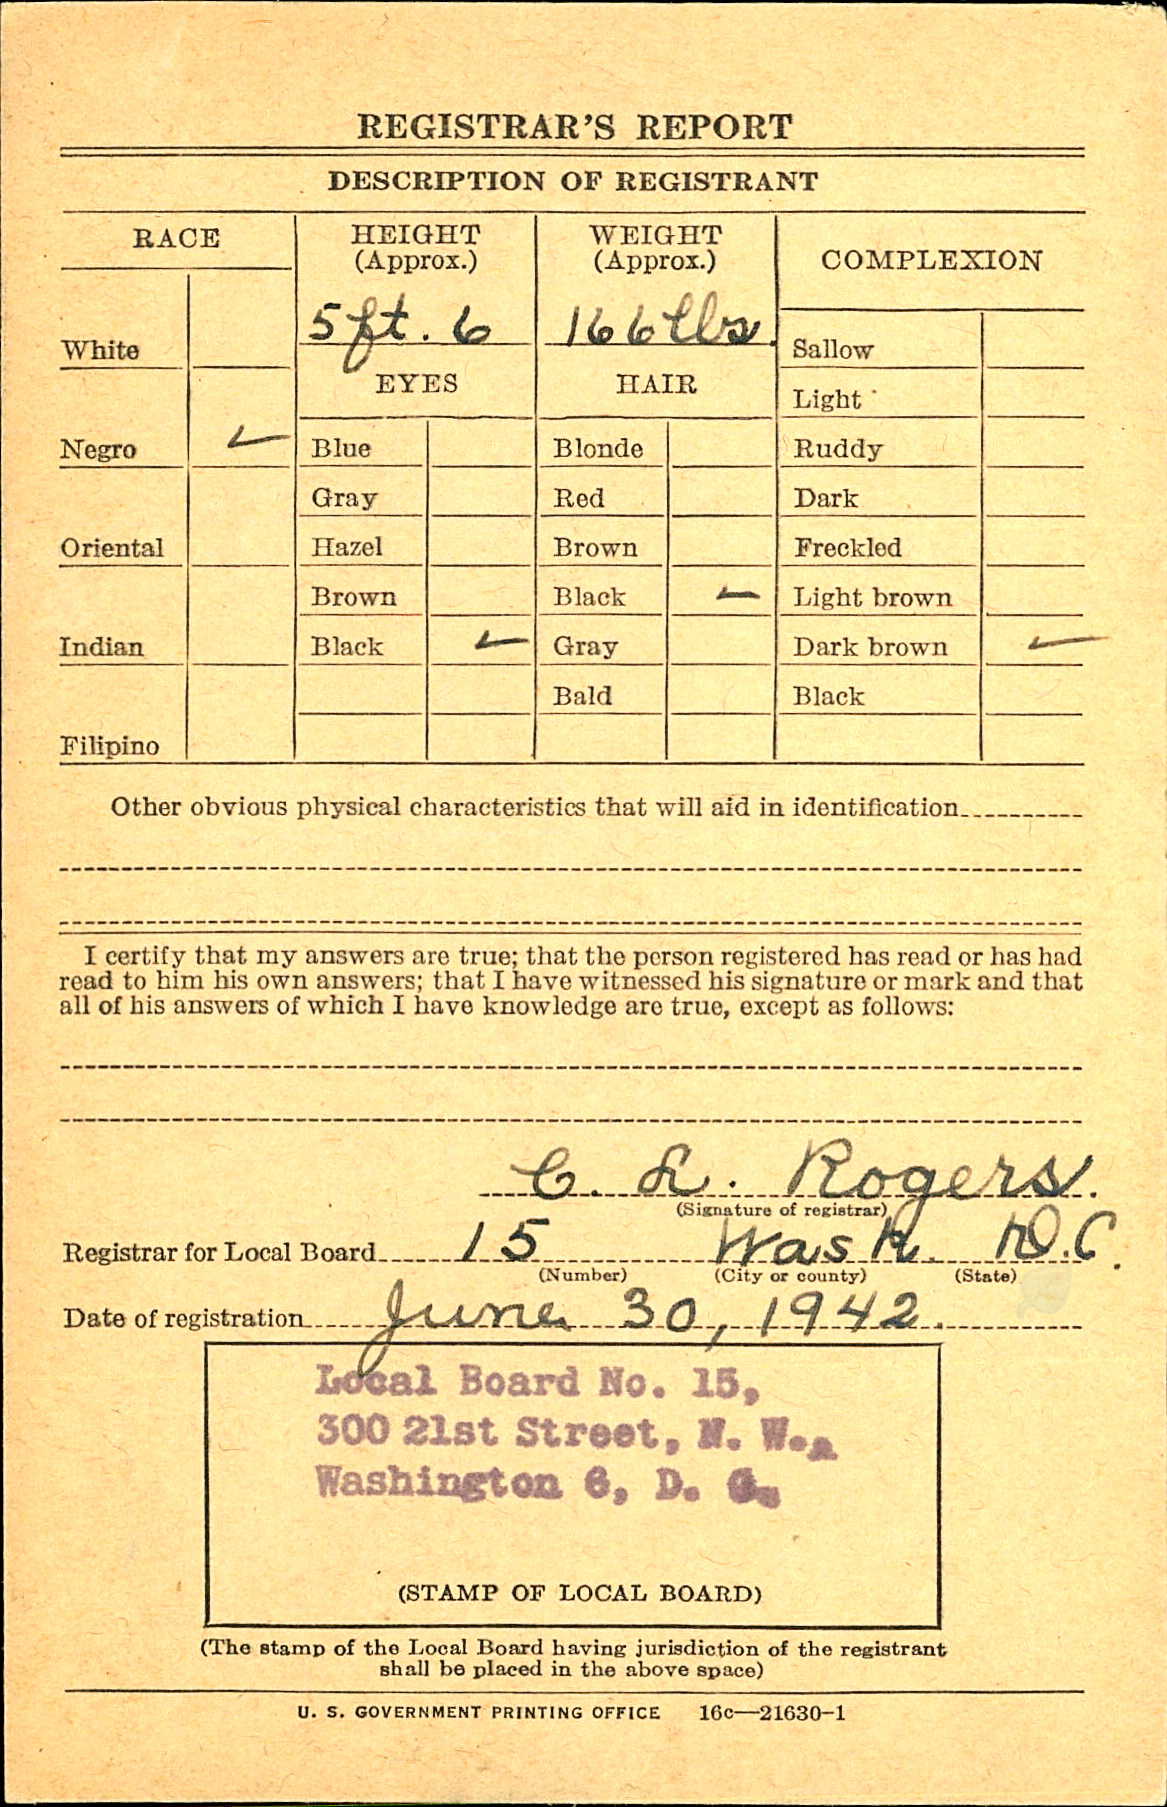 REGISTRAR'S REPORT
DESCRIPTION OF REGISTRANT
RACE
White
Negro ✓
Oriental
Indian
Filipino
HEIGHT
(Approx.)
5 ft. 6
EYES
Blue
Gray
Hazel
Brown
Black ✓
WEIGHT
(Approx.)
166 lbs.
HAIR
Blonde
Red
Brown
Black ✓
Gray
Bald
COMPLEXION
Sallow
Light
Ruddy
Dark
Freckled
Light brown
Dark brown ✓
Black
Other obvious physical characteristics that will aid in identification
I certify that my answers are true; that the person registered has read or has had
read to him his own answers; that I have witnessed his signature or mark and that
all of his answers of which I have knowledge are true, except as follows:
C. L. Rogers.
(Signature of registrar)
Registrar for Local Board 15 Wash. D.C.
(Number) (City or county) (State)
Date of registration June 30, 1942.
Local Board No. 15,
300 21st Street, N. W.,
Washington 6, D. C.
(STAMP OF LOCAL BOARD)
(The stamp of the Local Board having jurisdiction of the registrant
shall be placed in the above space)
U. S. GOVERNMENT PRINTING OFFICE 16c—21630-1